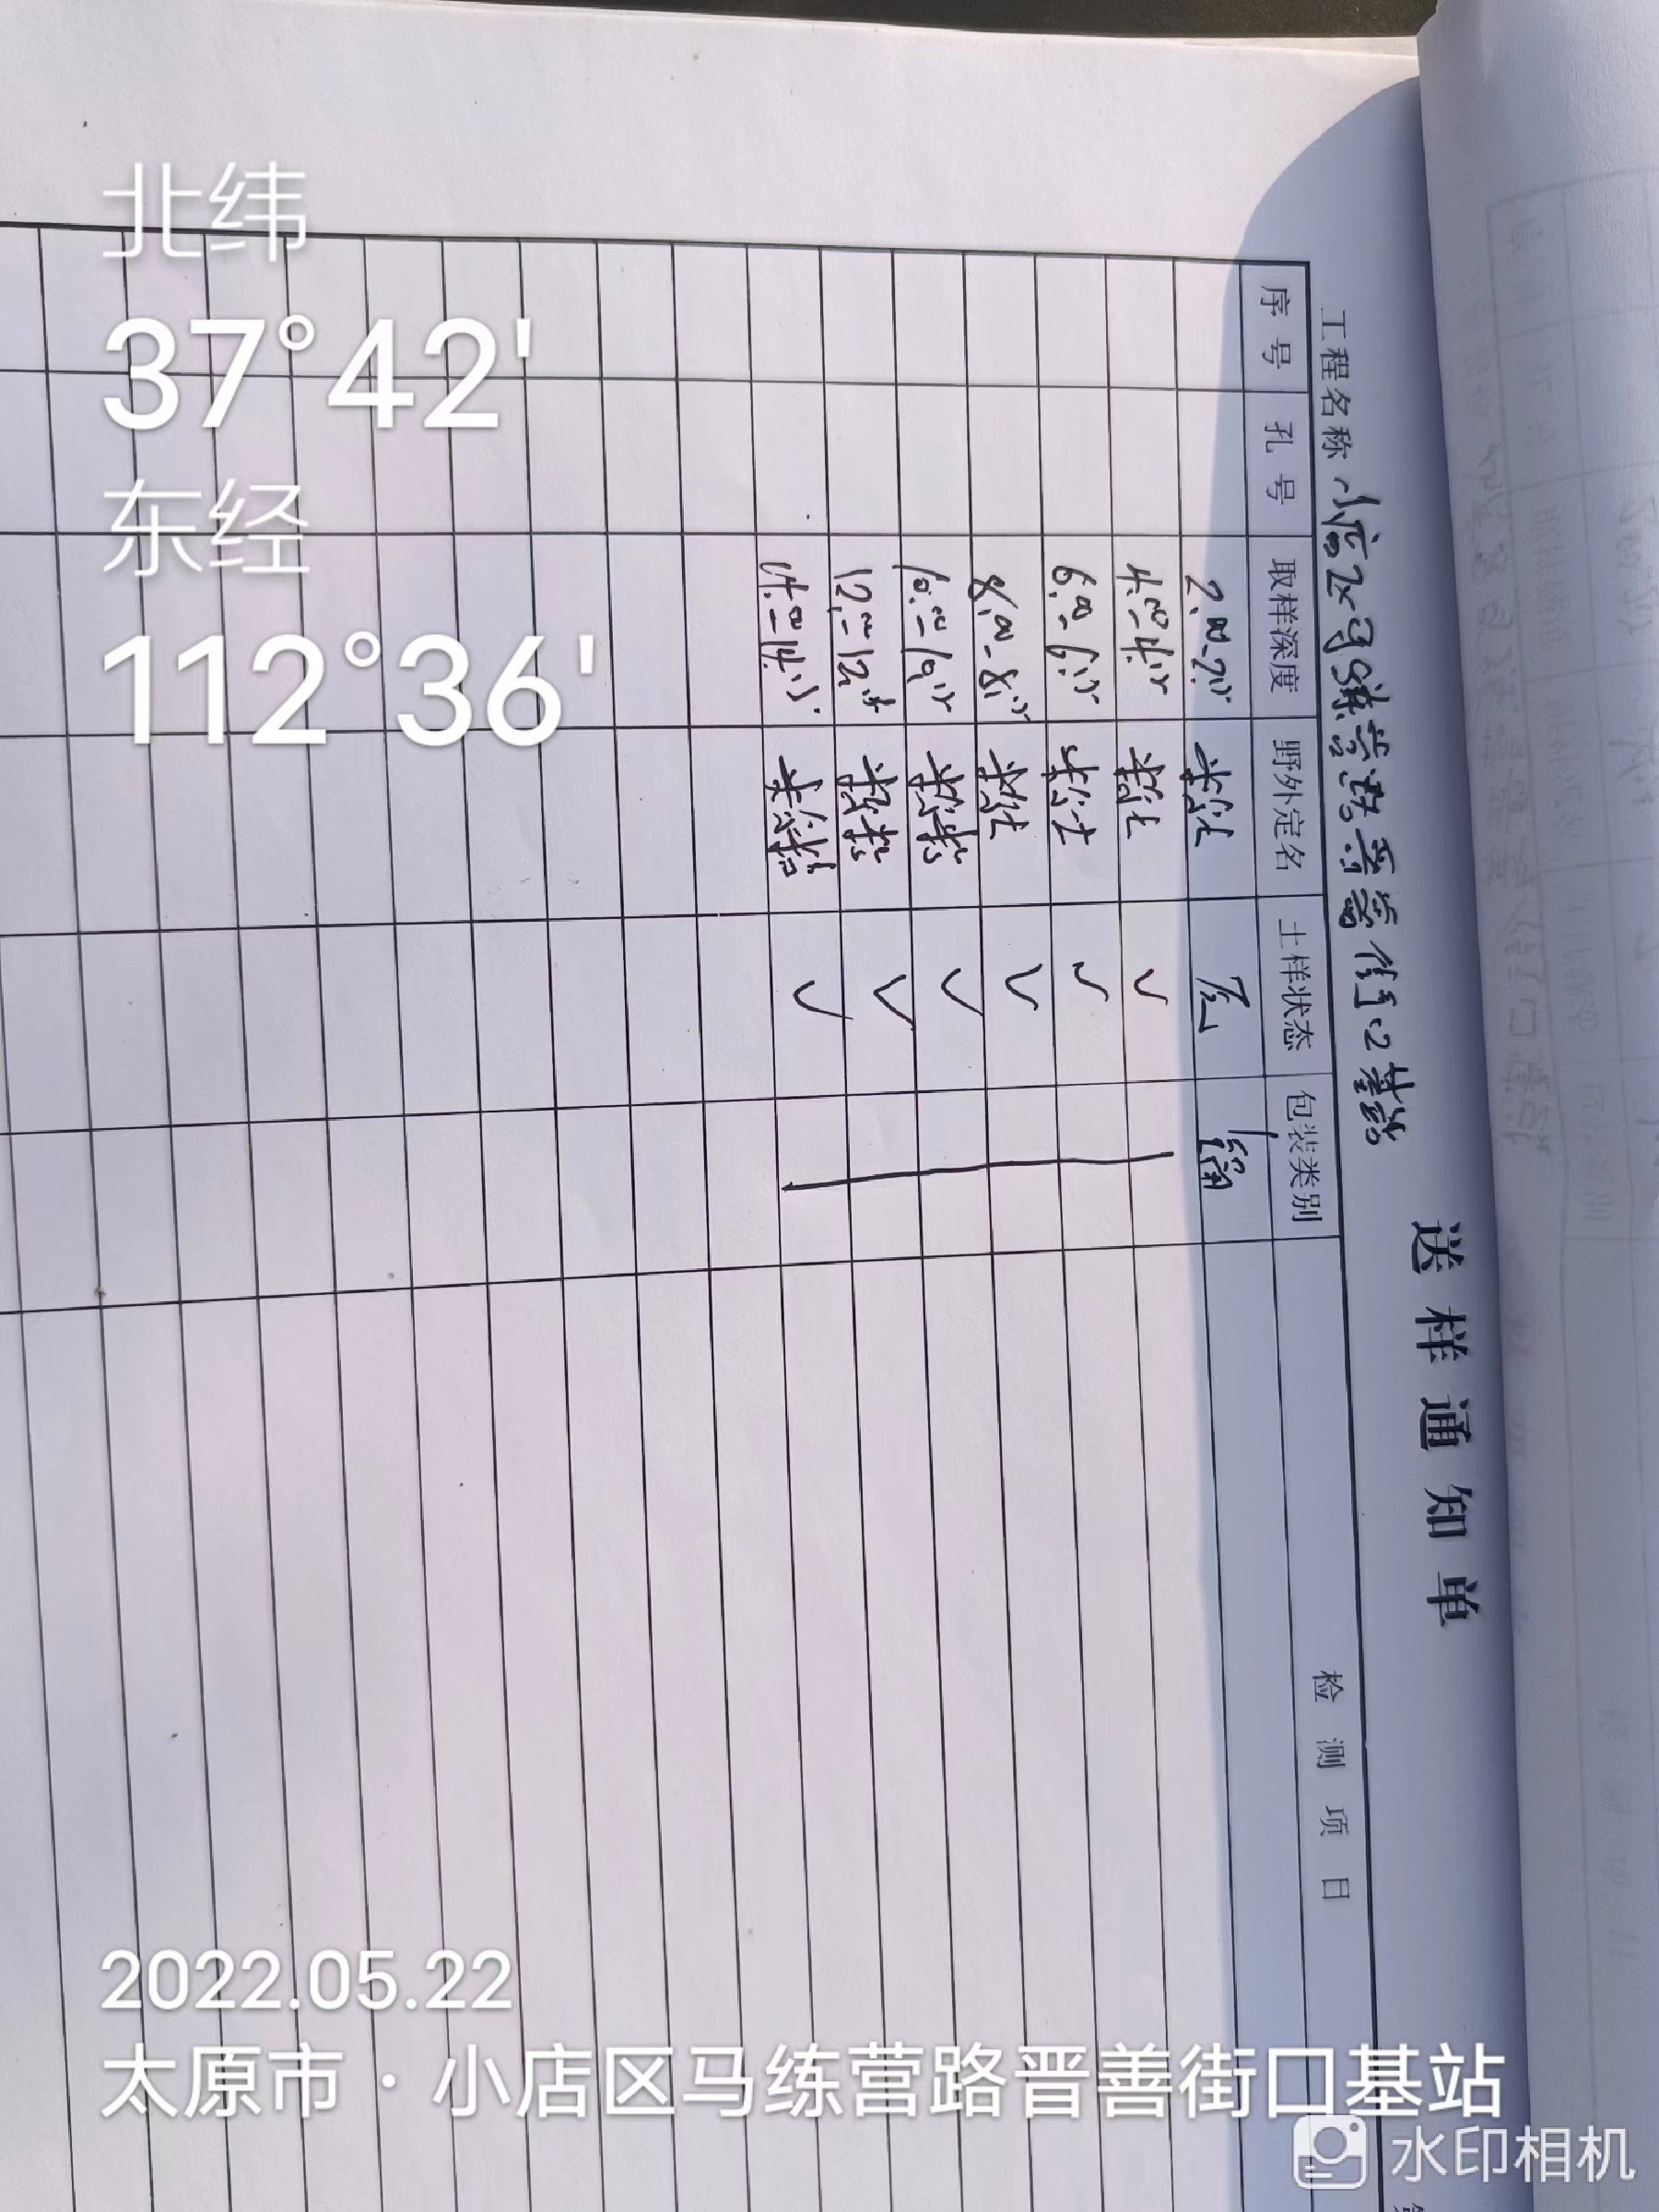 送样通知单
工程名称 小店区马练营路晋善街口基站
序号 孔号 取样深度 野外定名 土样状态 包装类别 检测项目
2.00-2.15 粉土
4.00-4.15 粉土 ✓
6.00-6.15 粉土 ✓
8.00-8.15 粉土 ✓
10.00-10.15 ✓
12.00-12.15 ✓
14.00-14.15 ✓
北纬
37°42'
东经
112°36'
2022.05.22
太原市·小店区马练营路晋善街口基站
水印相机